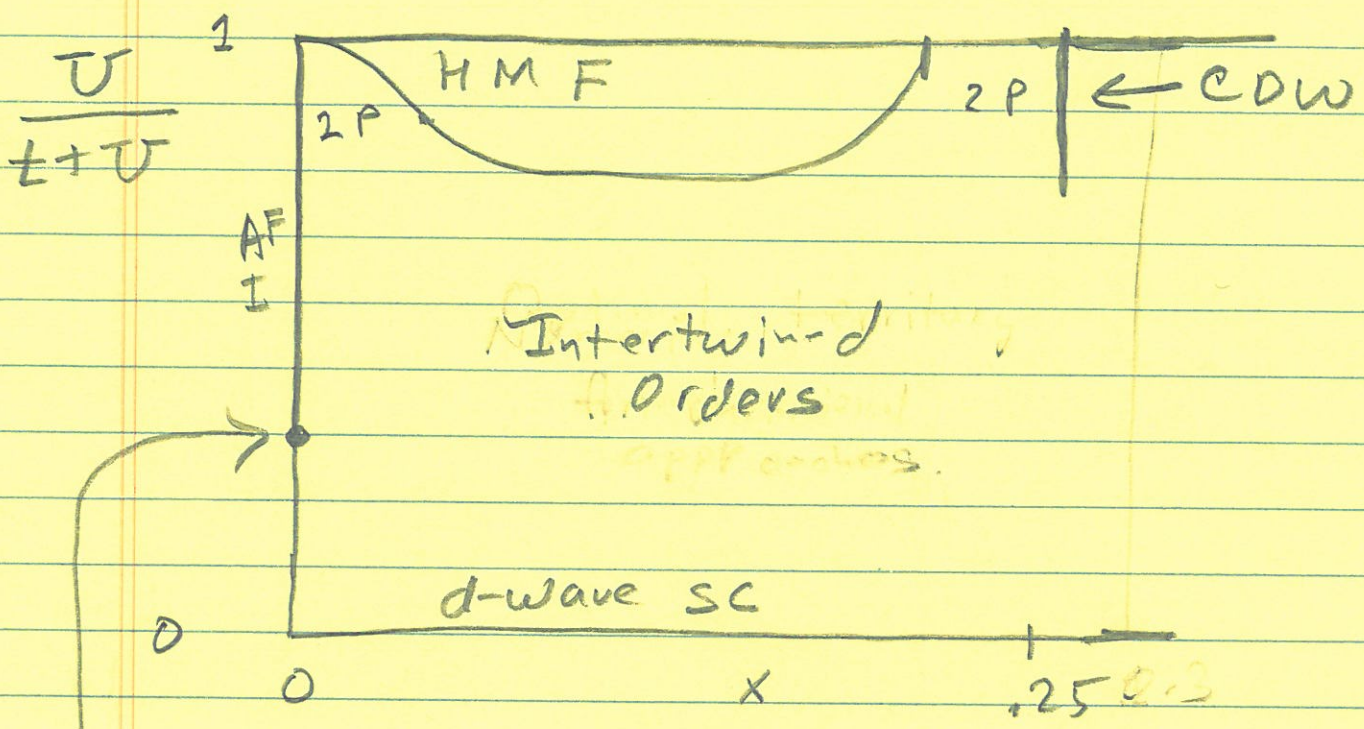 1
U
t+U
HMF
2P
2P
← CDW
AF
I
Intertwin-d
Orders
d-wave SC
0
0
x
.25